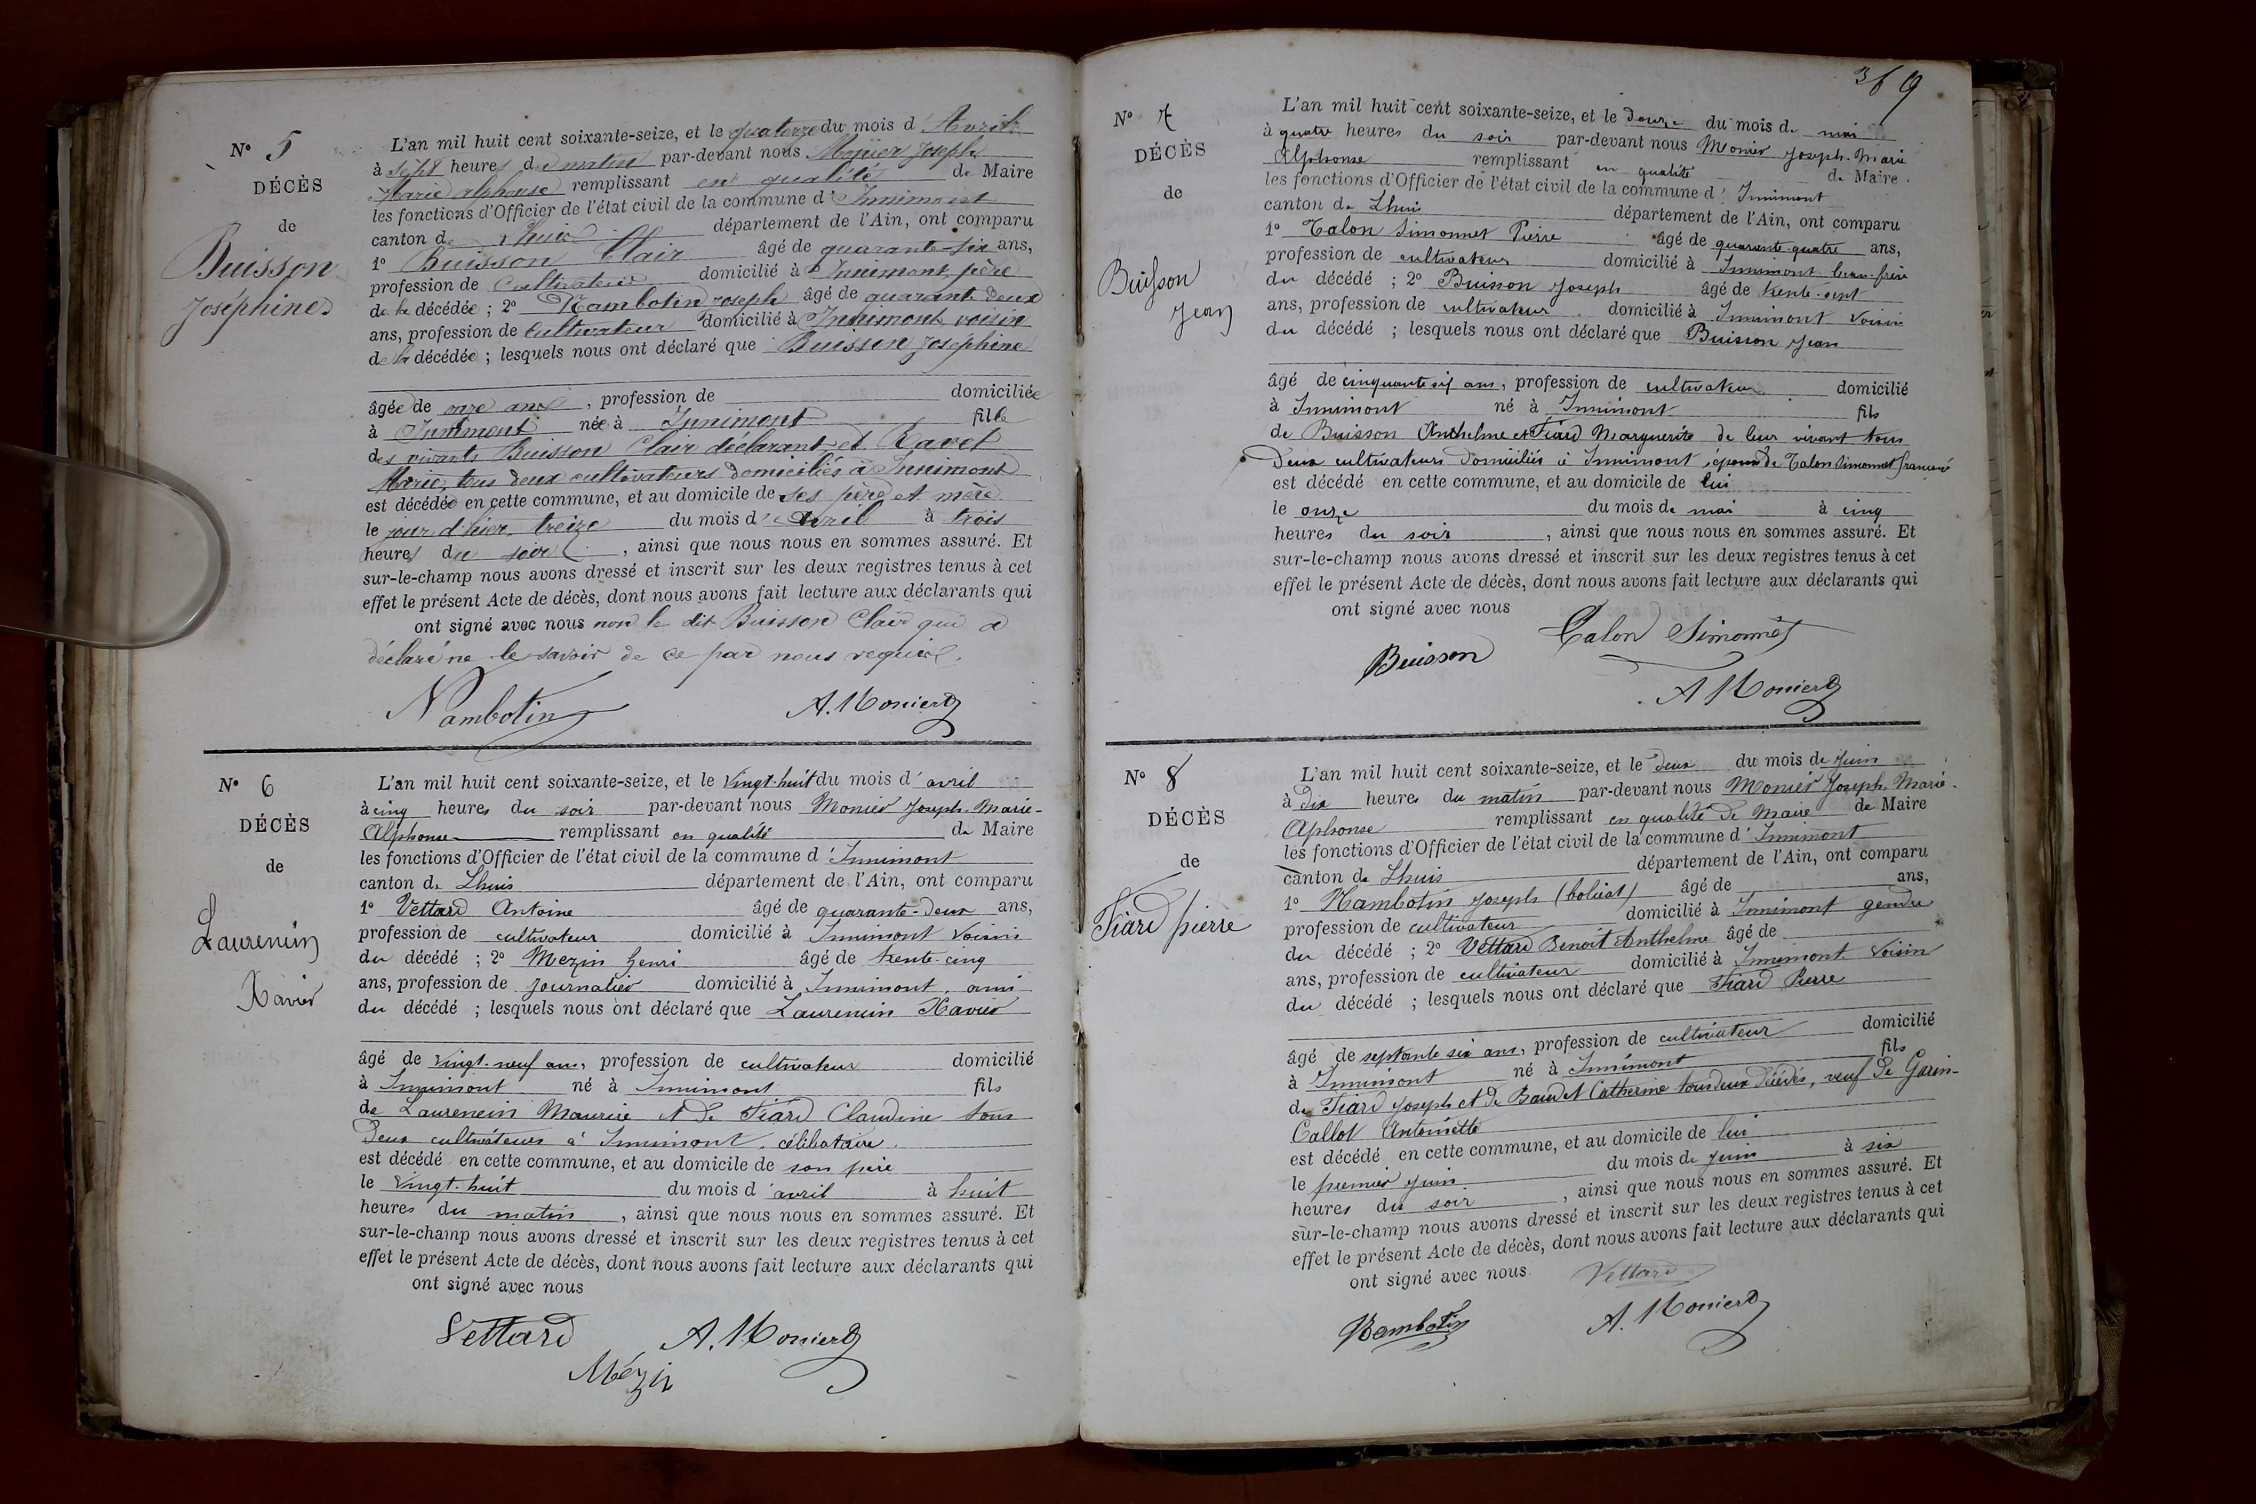 N° 5
DÉCÈS
de
Buisson
Joséphine
L'an mil huit cent soixante-seize, et le quatorze du mois d'Avril
à sept heures du matin par-devant nous Monier Joseph
Marie Alphonse remplissant en qualité de Maire
les fonctions d'Officier de l'état civil de la commune d'Innimont
canton de Lhuis département de l'Ain, ont comparu
1° Buisson Clair âgé de quarante-six ans,
profession de Cultivateur domicilié à Innimont, père
de la décédée ; 2° Nambotin Joseph âgé de quarante deux
ans, profession de Cultivateur domicilié à Innimont voisin
de la décédée ; lesquels nous ont déclaré que Buisson Joséphine
âgée de onze ans , profession de domiciliée
à Innimont née à Innimont fille
des vivants Buisson Clair déclarant et Ravet
Marie, tous deux cultivateurs domiciliés à Innimont
est décédée en cette commune, et au domicile de ses père et mère
le jour d'hier treize du mois d'Avril à trois
heures du soir , ainsi que nous nous en sommes assuré. Et
sur-le-champ nous avons dressé et inscrit sur les deux registres tenus à cet
effet le présent Acte de décès, dont nous avons fait lecture aux déclarants qui
ont signé avec nous non le dit Buisson Clair qui a
déclaré ne le savoir de ce par nous requis.
Nambotin A. Monier
N° 6
DÉCÈS
de
Laurencin
Xavier
L'an mil huit cent soixante-seize, et le vingt-huit du mois d'avril
à cinq heures du soir par-devant nous Monier Joseph-Marie-
Alphonse remplissant en qualité de Maire
les fonctions d'Officier de l'état civil de la commune d'Innimont
canton de Lhuis département de l'Ain, ont comparu
1° Vettard Antoine âgé de quarante-deux ans,
profession de cultivateur domicilié à Innimont voisin
du décédé ; 2° Mezin henri âgé de trente-cinq
ans, profession de journalier domicilié à Innimont, ami
du décédé ; lesquels nous ont déclaré que Laurencin Xavier
âgé de vingt-neuf ans, profession de cultivateur domicilié
à Innimont né à Innimont fils
de Laurencin Maurice et de Fiard Claudine tous
deux cultivateurs à Innimont, célibataire.
est décédé en cette commune, et au domicile de son père
le vingt-huit du mois d'avril à huit
heures du matin , ainsi que nous nous en sommes assuré. Et
sur-le-champ nous avons dressé et inscrit sur les deux registres tenus à cet
effet le présent Acte de décès, dont nous avons fait lecture aux déclarants qui
ont signé avec nous
Vettard A. Monier
Mézin
369
N° 7
DÉCÈS
de
Buisson
Jean
L'an mil huit cent soixante-seize, et le douze du mois de mai
à quatre heures du soir par-devant nous Monier Joseph-Marie
Alphonse remplissant en qualité de Maire.
les fonctions d'Officier de l'état civil de la commune d'Innimont
canton de Lhuis département de l'Ain, ont comparu
1° Talon Simonnet Pierre âgé de quarante-quatre ans,
profession de cultivateur domicilié à Innimont beau-frère
du décédé ; 2° Buisson Joseph âgé de trente-sept
ans, profession de cultivateur domicilié à Innimont voisin
du décédé ; lesquels nous ont déclaré que Buisson Jean
âgé de cinquante six ans, profession de cultivateur domicilié
à Innimont né à Innimont fils
de Buisson Anthelme et Fiard Marguerite de leur vivant tous
deux cultivateurs domiciliés à Innimont, époux de Talon Simonnet
est décédé en cette commune, et au domicile de lui
le onze du mois de mai à cinq
heures du soir , ainsi que nous nous en sommes assuré. Et
sur-le-champ nous avons dressé et inscrit sur les deux registres tenus à cet
effet le présent Acte de décès, dont nous avons fait lecture aux déclarants qui
ont signé avec nous
Talon Simonnet
Buisson
A Monier
N° 8
DÉCÈS
de
Fiard pierre
L'an mil huit cent soixante-seize, et le deux du mois de juin
à dix heures du matin par-devant nous Monier Joseph-Marie-
Alphonse remplissant en qualité de Maire de Maire
les fonctions d'Officier de l'état civil de la commune d'Innimont
canton de Lhuis département de l'Ain, ont comparu
1° Nambotin Joseph âgé de ans,
profession de cultivateur domicilié à Innimont gendre
du décédé ; 2° Vettard Benoit Anthelme âgé de
ans, profession de cultivateur domicilié à Innimont voisin
du décédé ; lesquels nous ont déclaré que Fiard Pierre
âgé de septante six ans, profession de cultivateur domicilié
à Innimont né à Innimont fils
de Fiard Joseph et de Baudet Catherine tous deux décédés, veuf de Garin-
Callot Antoinette
est décédé en cette commune, et au domicile de lui
le premier juin du mois de juin à six
heures du soir , ainsi que nous nous en sommes assuré. Et
sur-le-champ nous avons dressé et inscrit sur les deux registres tenus à cet
effet le présent Acte de décès, dont nous avons fait lecture aux déclarants qui
ont signé avec nous. Vettard
Nambotin A. Monier